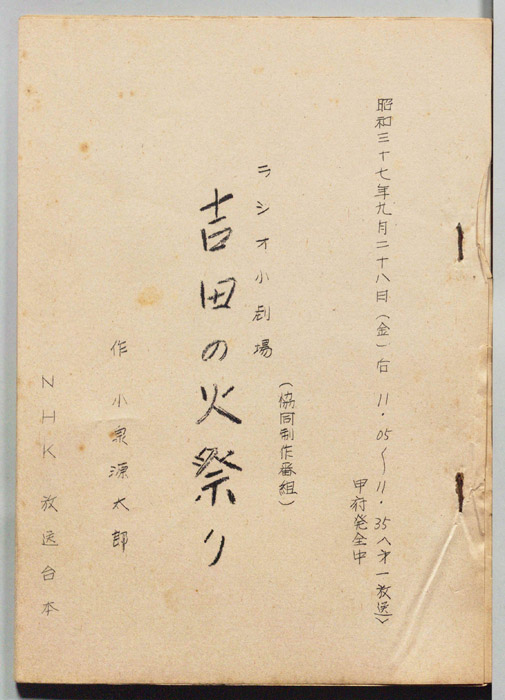 昭和三十七年九月二十八日(金)右 11.05〜11.35〈才一放送〉
甲府発全中
(協同制作番組)
ラジオ小劇場
吉田の火祭り
作 小泉源太郎
NHK 放送台本